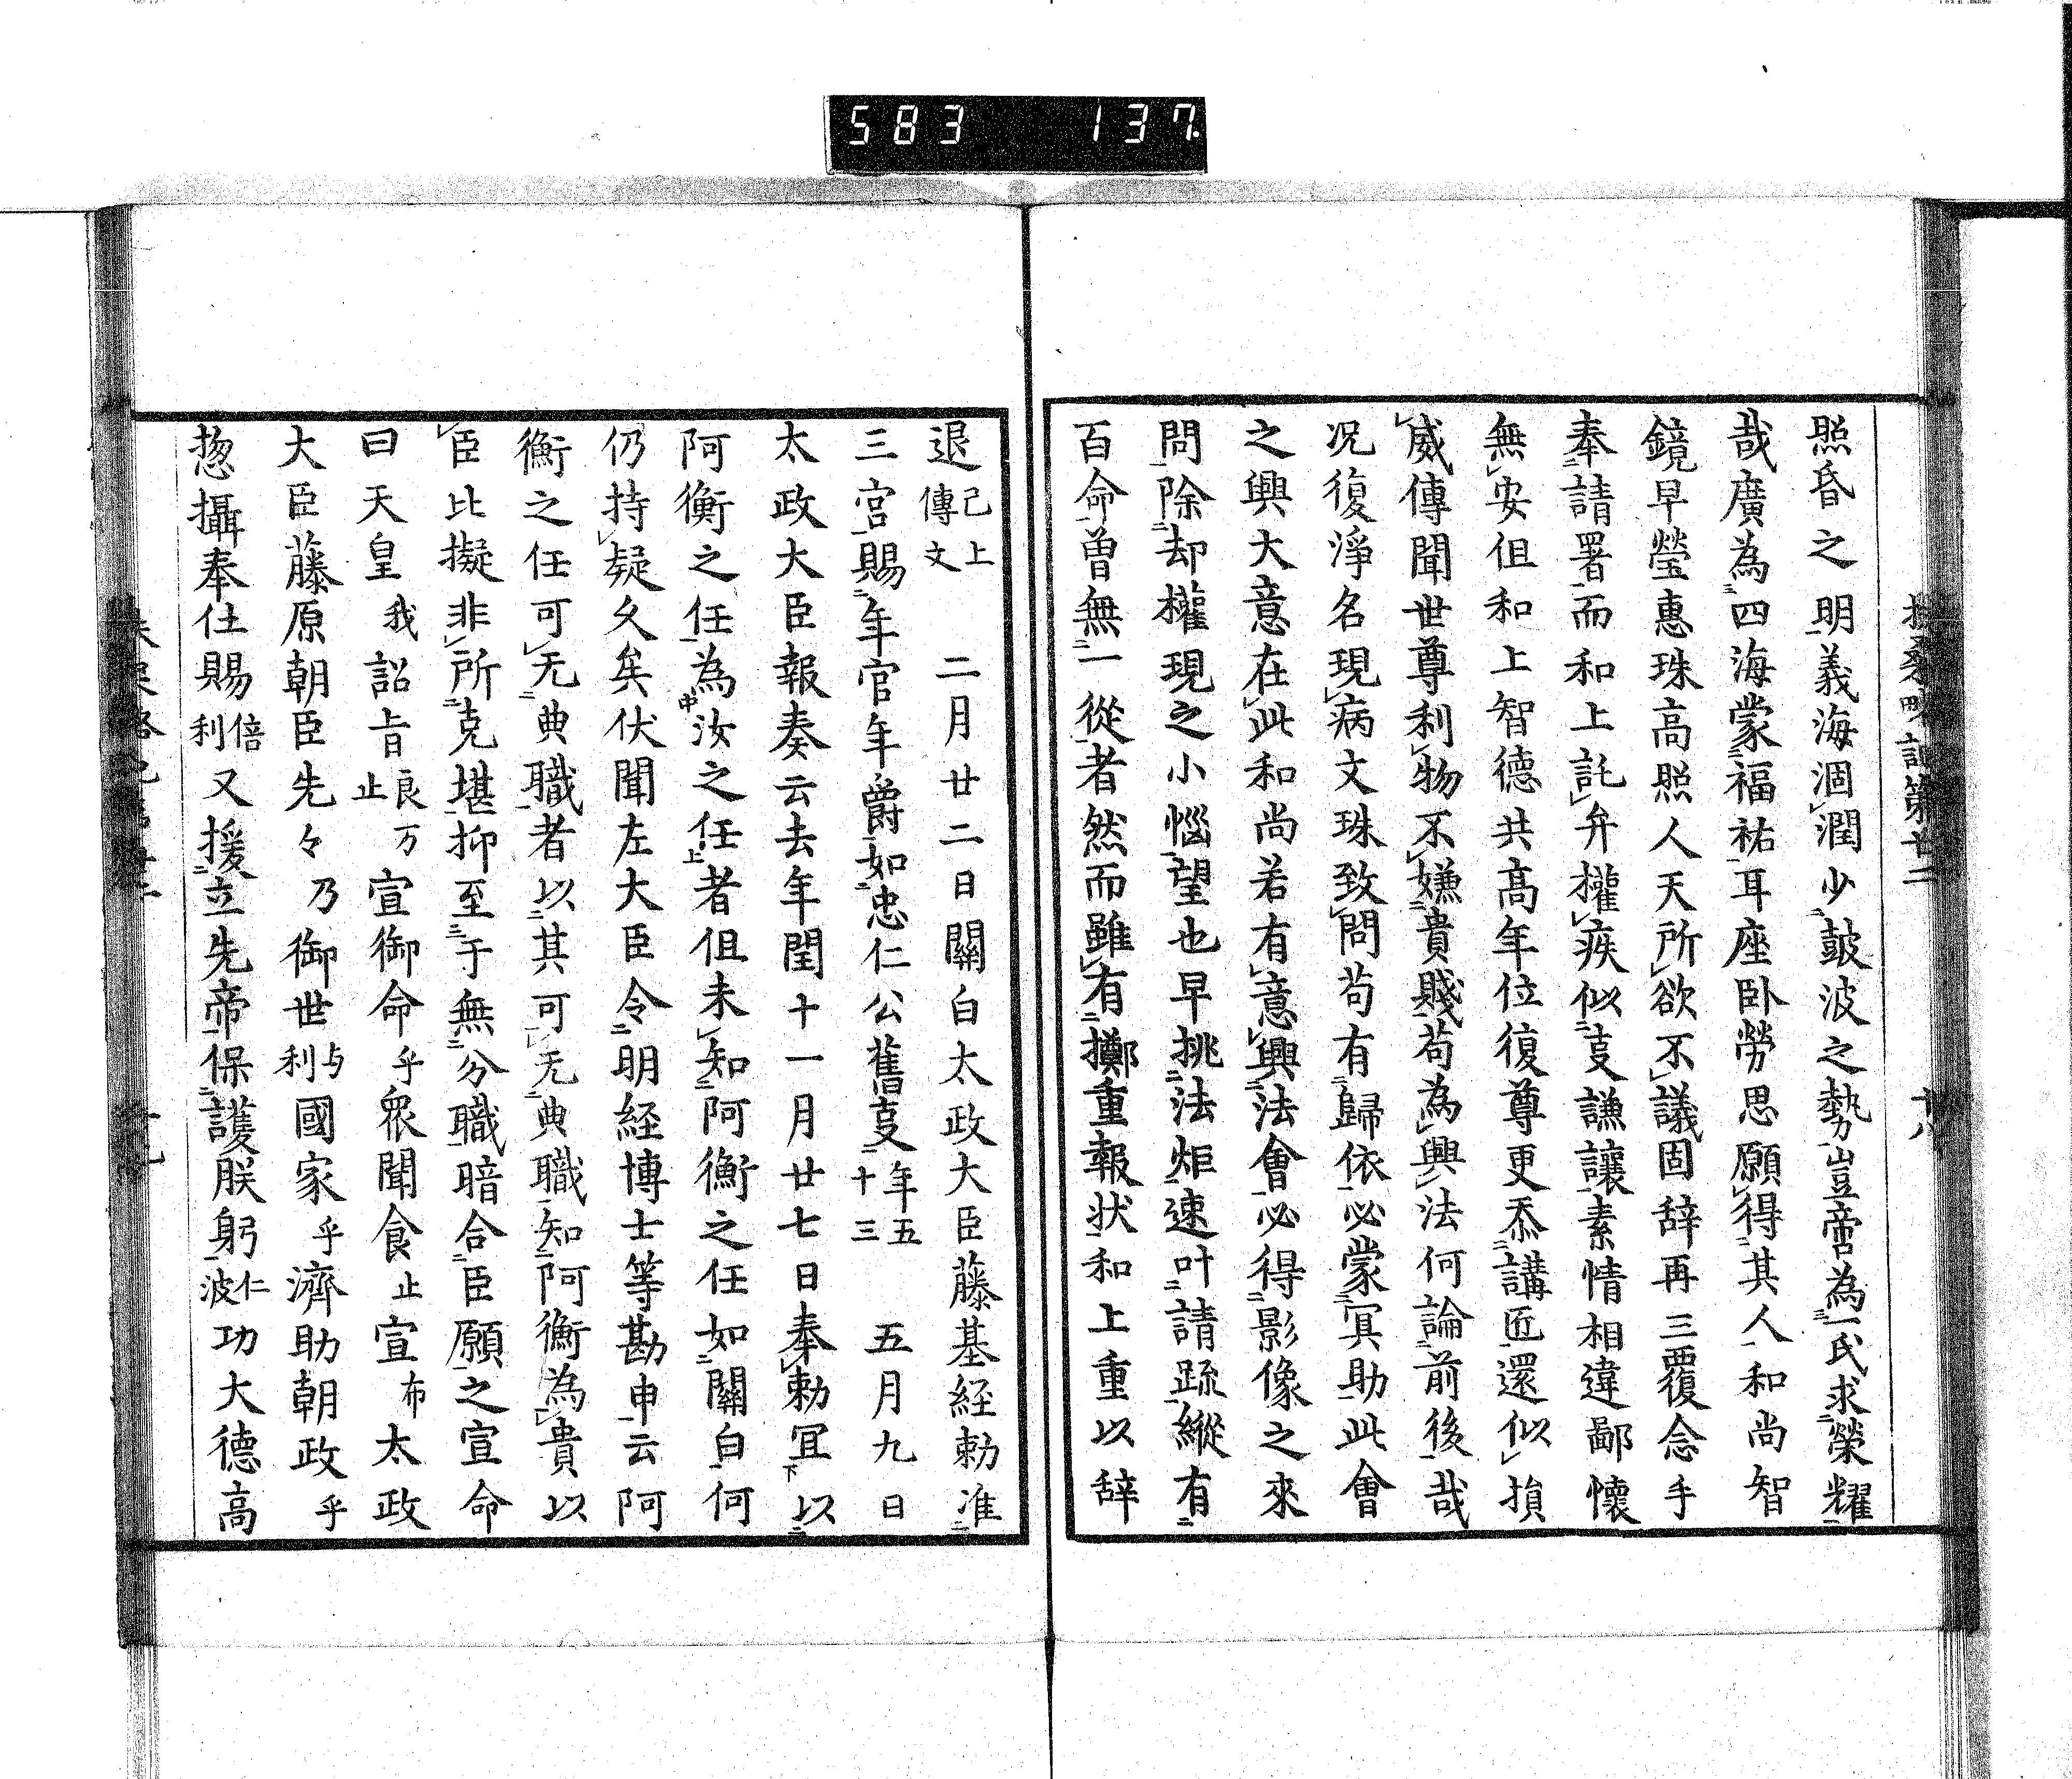 583 137
扶桑略記第廿二 十八
照昏之明義海涸潤少皷波之勢豈啻為一氏求榮耀
哉廣為四海蒙福祐耳座臥勞思願得其人和尚智
鏡早瑩惠珠高照人天所欲不議固辞再三覆念手
奉請署而和上託弁權疾似㕝謙讓素情相違鄙懷
無安但和上智德共高年位復尊更忝講匠還似損
威傳聞世尊利物不嫌貴賤苟為興法何論前後哉
况復淨名現病文珠致問苟有歸依必蒙冥助此會
之興大意在此和尚若有意興法會必得影像之來
問除却權現之小惱望也早挑法炬速叶請跡縱有
百命曽無一從者然而雖有擲重報状和上重以辞
退已上傳文 二月廿二日關白太政大臣藤基経勅准
三宮賜年官年爵如忠仁公舊㕝年五十三 五月九日
太政大臣報奏云去年閏十一月廿七日奉勅冝以
阿衡之任為汝之任者但未知阿衡之任如關白何
仍持疑久矣伏聞左大臣令明経博士等勘申云阿
衡之任可无典職者以其可无典職知阿衡為貴以
臣比擬非所克堪抑至于無分職暗合臣願之宣命
曰天皇我詔旨良止万宣御命乎衆聞食止宣布太政
大臣藤原朝臣先々乃御世与利國家乎濟助朝政乎
惣攝奉仕賜倍利又援立先帝保護朕躬仁波功大德高